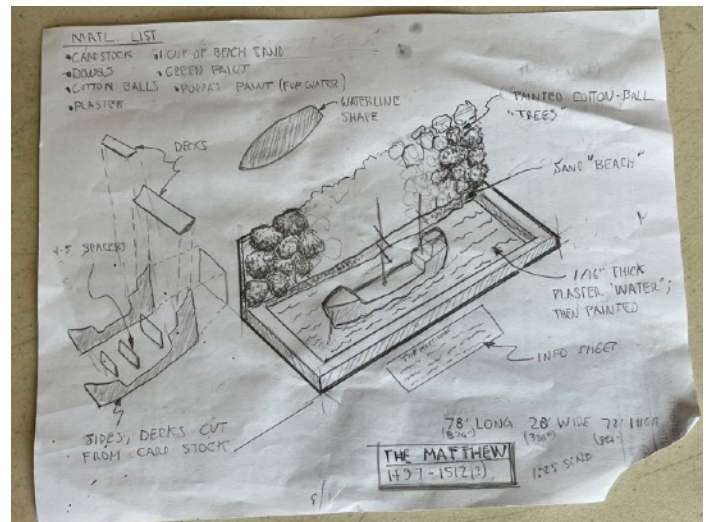 MATL. LIST
•CARDSTOCK •1 CUP OF BEACH SAND
•DOWELS •GREEN PAINT
•COTTON BALLS •POPPA'S PAINT (FOR WATER)
•PLASTER
WATERLINE
SHAPE
PAINTED COTTON-BALL
"TREES"
DECKS
SAND "BEACH"
4-5 SPACERS
1/16" THICK
PLASTER "WATER";
THEN PAINTED
THE MATTHEW
INFO SHEET
SIDES, DECKS CUT
FROM CARD STOCK
78' LONG 28' WIDE 72' HIGH
(936") (336") (864")
THE MATTHEW
1497-1512(?)